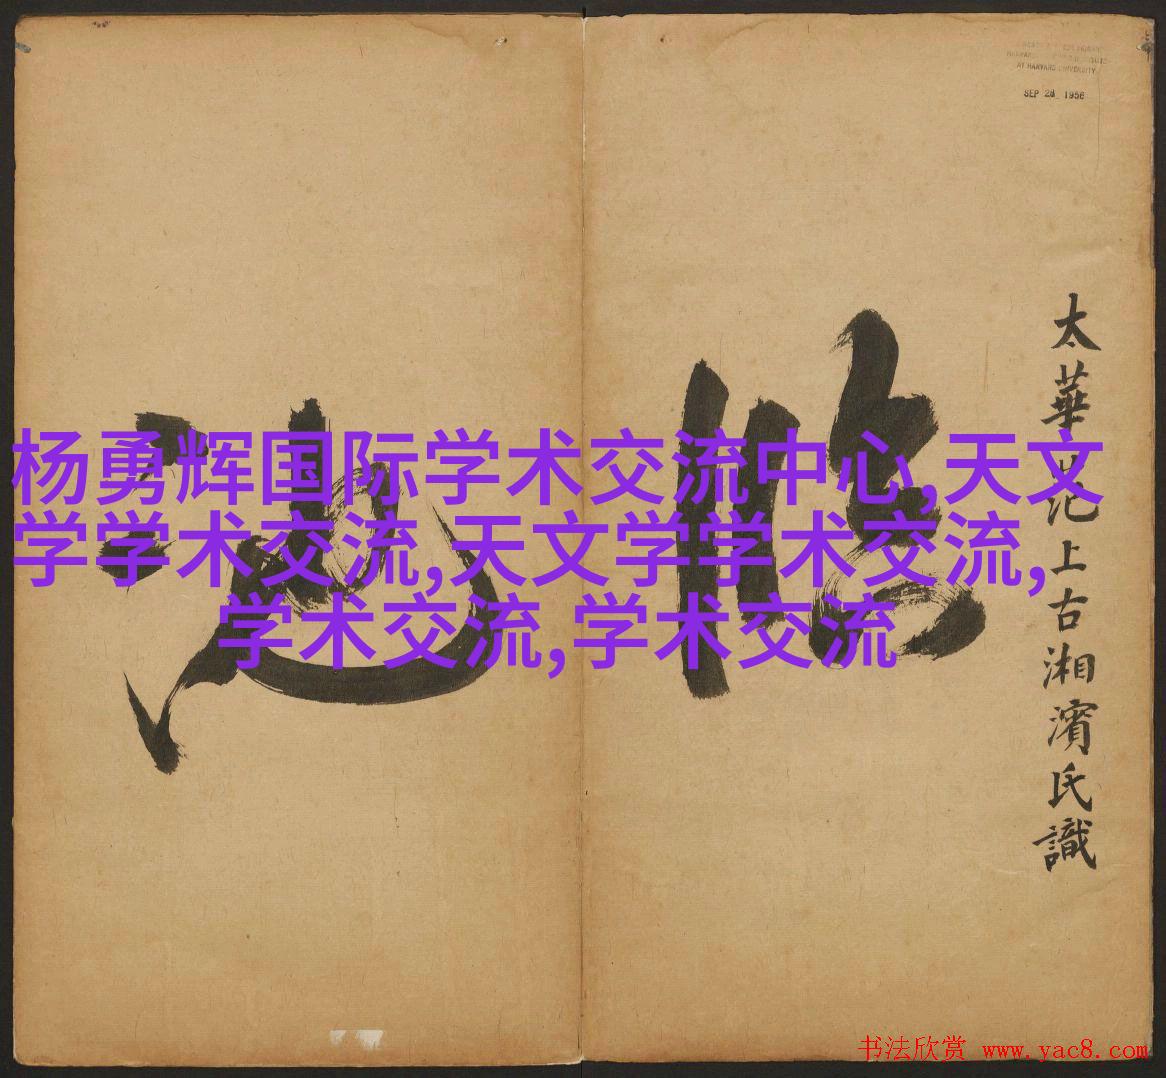 AT HARVARD UNIVERSITY
SEP 28 1956
杨勇辉国际学术交流中心,天文
学学术交流,天文学学术交流,
学术交流,学术交流
太華
上古湘濱氏識
书法欣赏 www.yac8.com